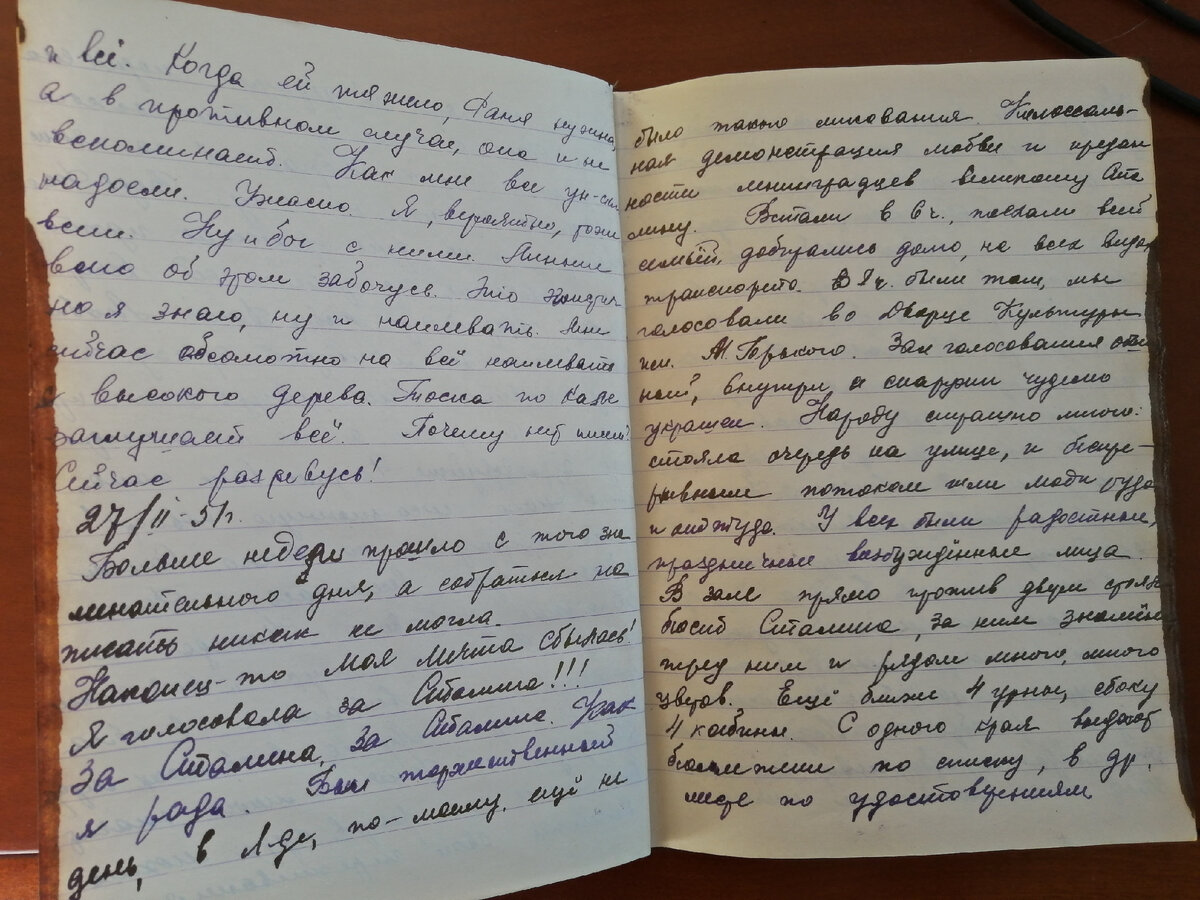 и всё. Когда ей тяжело, Фаня нужна,
а в противном случае, она и не
вспоминает. Как мне все
надоели. Ужасно. Я, вероятно, тоже
всем. Ну и бог с ними. Меньше
всего об этом забочусь. Это
но я знаю, ну и наплевать. Мне
сейчас абсолютно на всё наплевать
с высокого дерева. Тоска по Казе
заглушает всё. Почему нет писем?
Сейчас разревусь!
27/II-51г.
Больше недели прошло с того зна
менательного дня, а собраться на
писать никак не могла.
Наконец-то моя мечта сбылась!
Я голосовала за Сталина!!!
За Сталина, за Сталина. Как
я рада. Был торжественный
день, в Л-де, по-моему, ещё не
было такого ликования. Колоссаль-
ная демонстрация любви и предан
ности ленинградцев великому Ста
лину. Встали в 6 ч., поехали всей
семьёй, добирались долго, на всех видах
транспорта. В 8 ч. были там, мы
голосовали во Дворце Культуры
им. М. Горького. Зал голосования
внутри и снаружи чудесно
украшен. Народу страшно много:
стояла очередь на улице, и беспре
рывным потоком шли люди туда
и оттуда. У всех были радостные,
празднично возбуждённые лица.
В зале прямо против двери стоял
бюст Сталина, за ним знамёна
перед ним и рядом много, много
цветов. Ещё ближе 4 урны, сбоку
4 кабины. С одного края выдают
бюллетени по списку, в др.
месте по удостоверениям